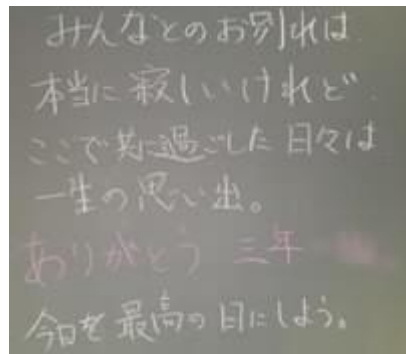 みんなとのお別れは
本当に寂しいけれど
ここで共に過ごした日々は
一生の思い出。
ありがとう 三年
今日を最高の日にしよう。